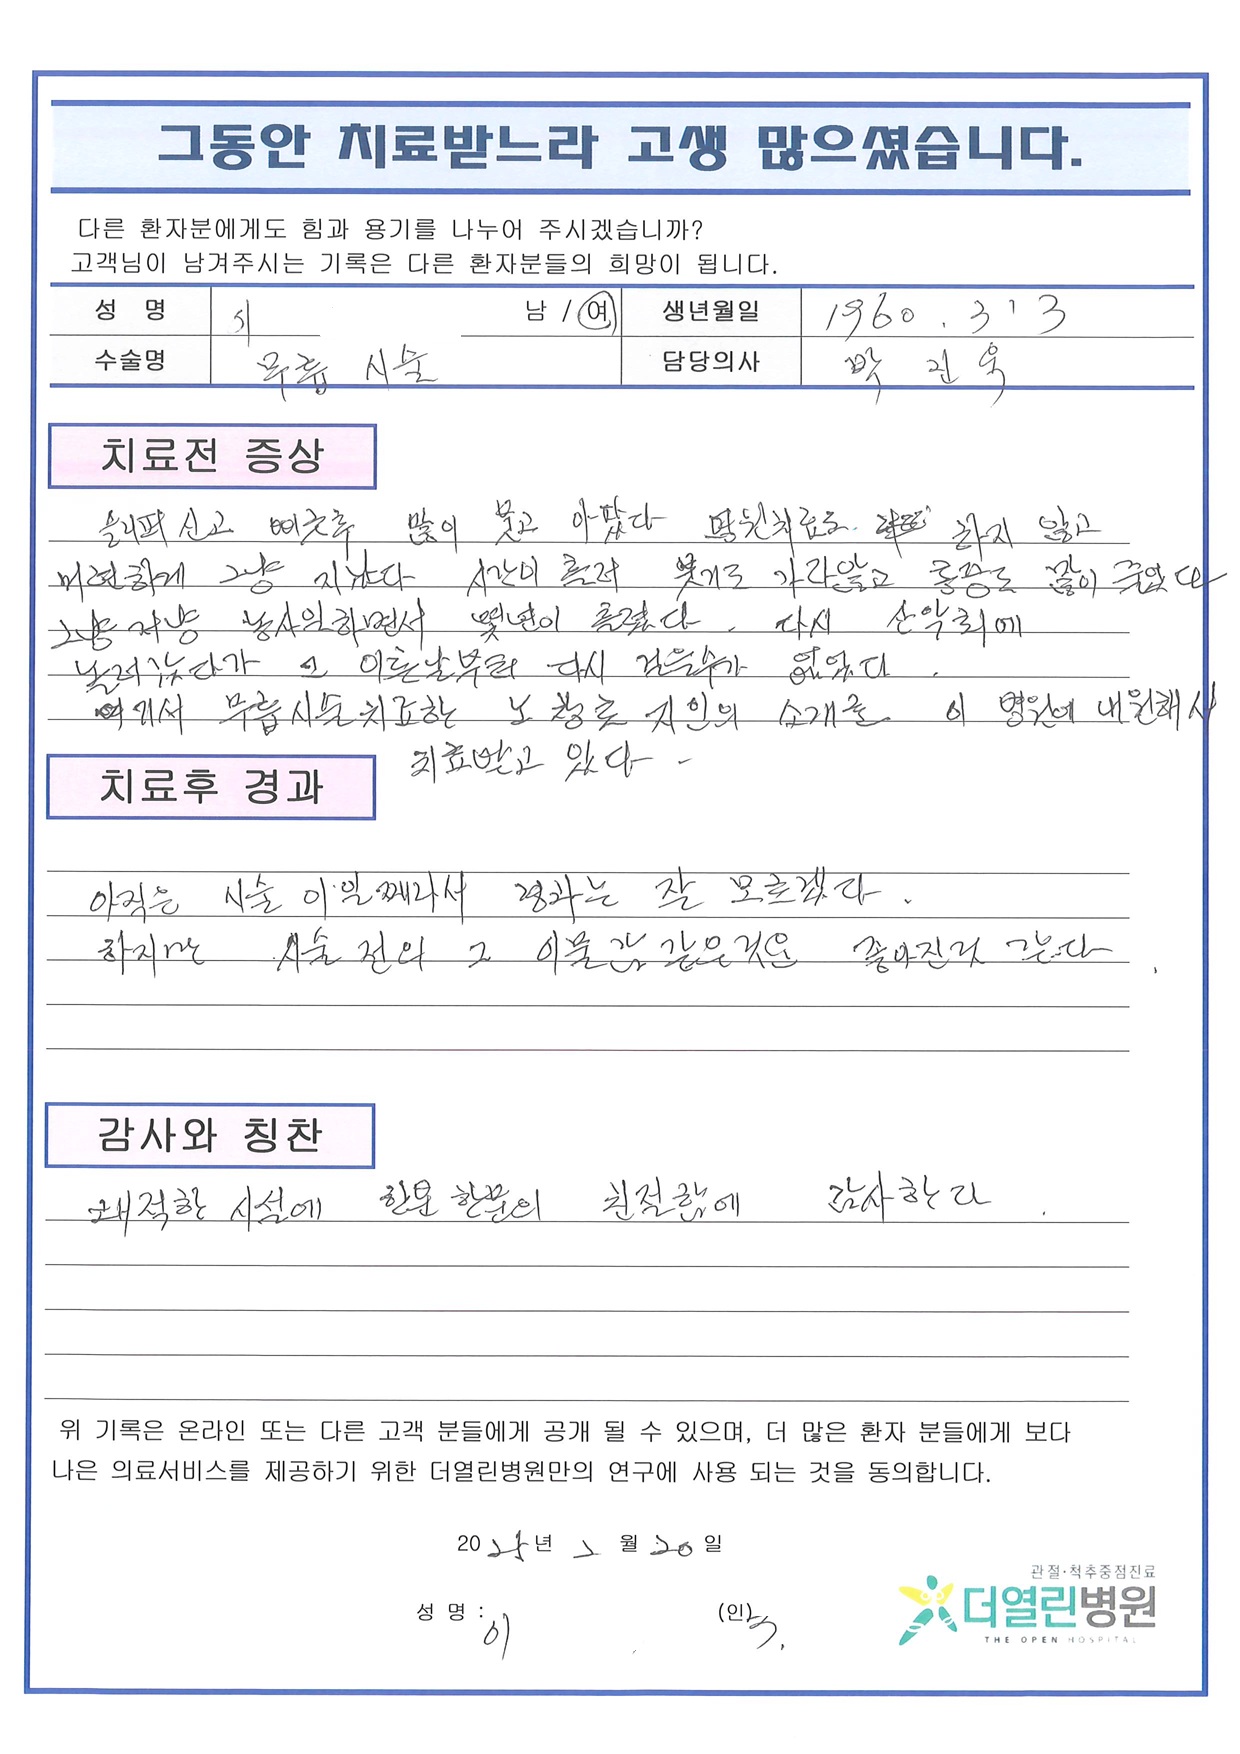 그동안 치료받느라 고생 많으셨습니다.
다른 환자분에게도 힘과 용기를 나누어 주시겠습니까?
고객님이 남겨주시는 기록은 다른 환자분들의 희망이 됩니다.
성 명 이 남 / 여 생년월일 1960. 3. 3
수술명 무릎 시술 담당의사 박 진 욱
치료전 증상
슬리퍼 신고 삐긋후 많이 붓고 아팠다 병원치료도 하지 않고
미련하게 그냥 지냈다 시간이 흘러 붓기도 가라앉고 통증도 많이 줄었다
그냥저냥 농사일하면서 몇년이 흘렀다. 다시 산악회에
놀러갔다가 그 이튿날부터 다시 걸을수가 없었다.
여기서 무릎시술치료한 노 지인의 소개로 이 병원에 내원해서
치료받고 있다.
치료후 경과
아직은 시술 이일째라서 경과는 잘 모르겠다.
하지만 시술 전의 그 이물감 같은것은 좋아진것 같다.
감사와 칭찬
쾌적한 시설에 한분 한분의 친절함에 감사한다.
위 기록은 온라인 또는 다른 고객 분들에게 공개 될 수 있으며, 더 많은 환자 분들에게 보다
나은 의료서비스를 제공하기 위한 더열린병원만의 연구에 사용 되는 것을 동의합니다.
2025년 2월 20일
성 명 : 이 (인)
관절·척추중점진료
더열린병원
THE OPEN HOSPITAL